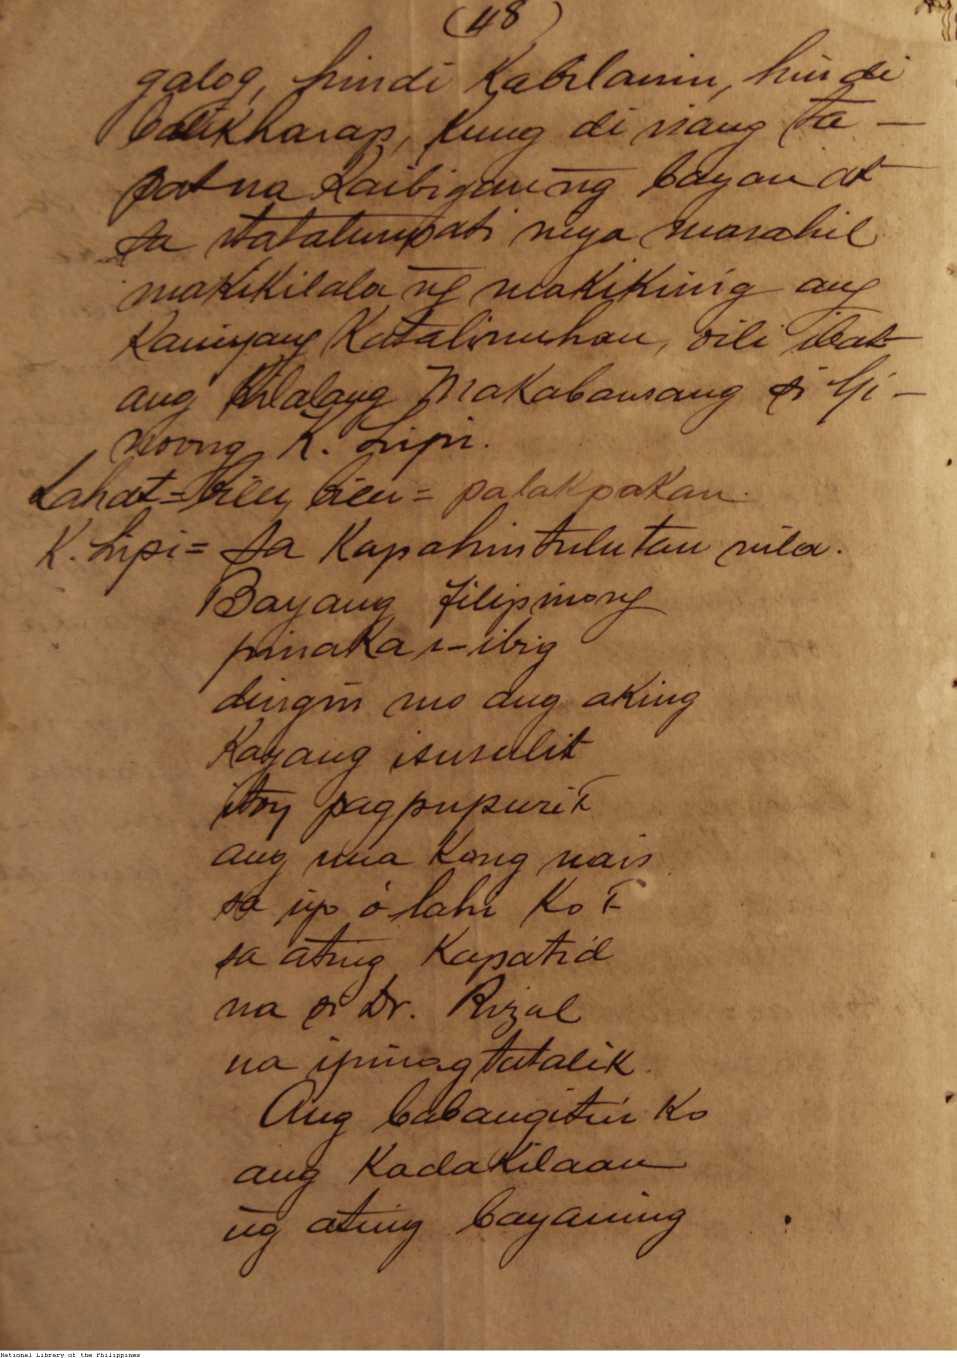 (48)
galog, hindi Kabilanin, hindi
balikharap, kung di isang ta-
pat na Kaibigan n̄g bayan at
sa tatalumpati niya masahil
makikilala n̄g makikinig ang
Kaniyang Katalinuhan, siℓi ibat
ang Kilalang Makabansang si Gi-
noong K. Lipi.
Lahat = bien, bien = palakpakan.
K. Lipi = Sa Kapahintulutan nila.
Bayang Filipinong
pinaka i-ibig
dingin mo ang aking
Kayang isusulit
itoy pagpupurit
ang una Kong nais
sa iyo ó lahi Ko t
sa ating Kapatid
na si Dr. Rizal
na ipinagtatalik.
Ang babangitin Ko
ang Kadakilaan
n̄g ating bayaning
National Library of the Philippines